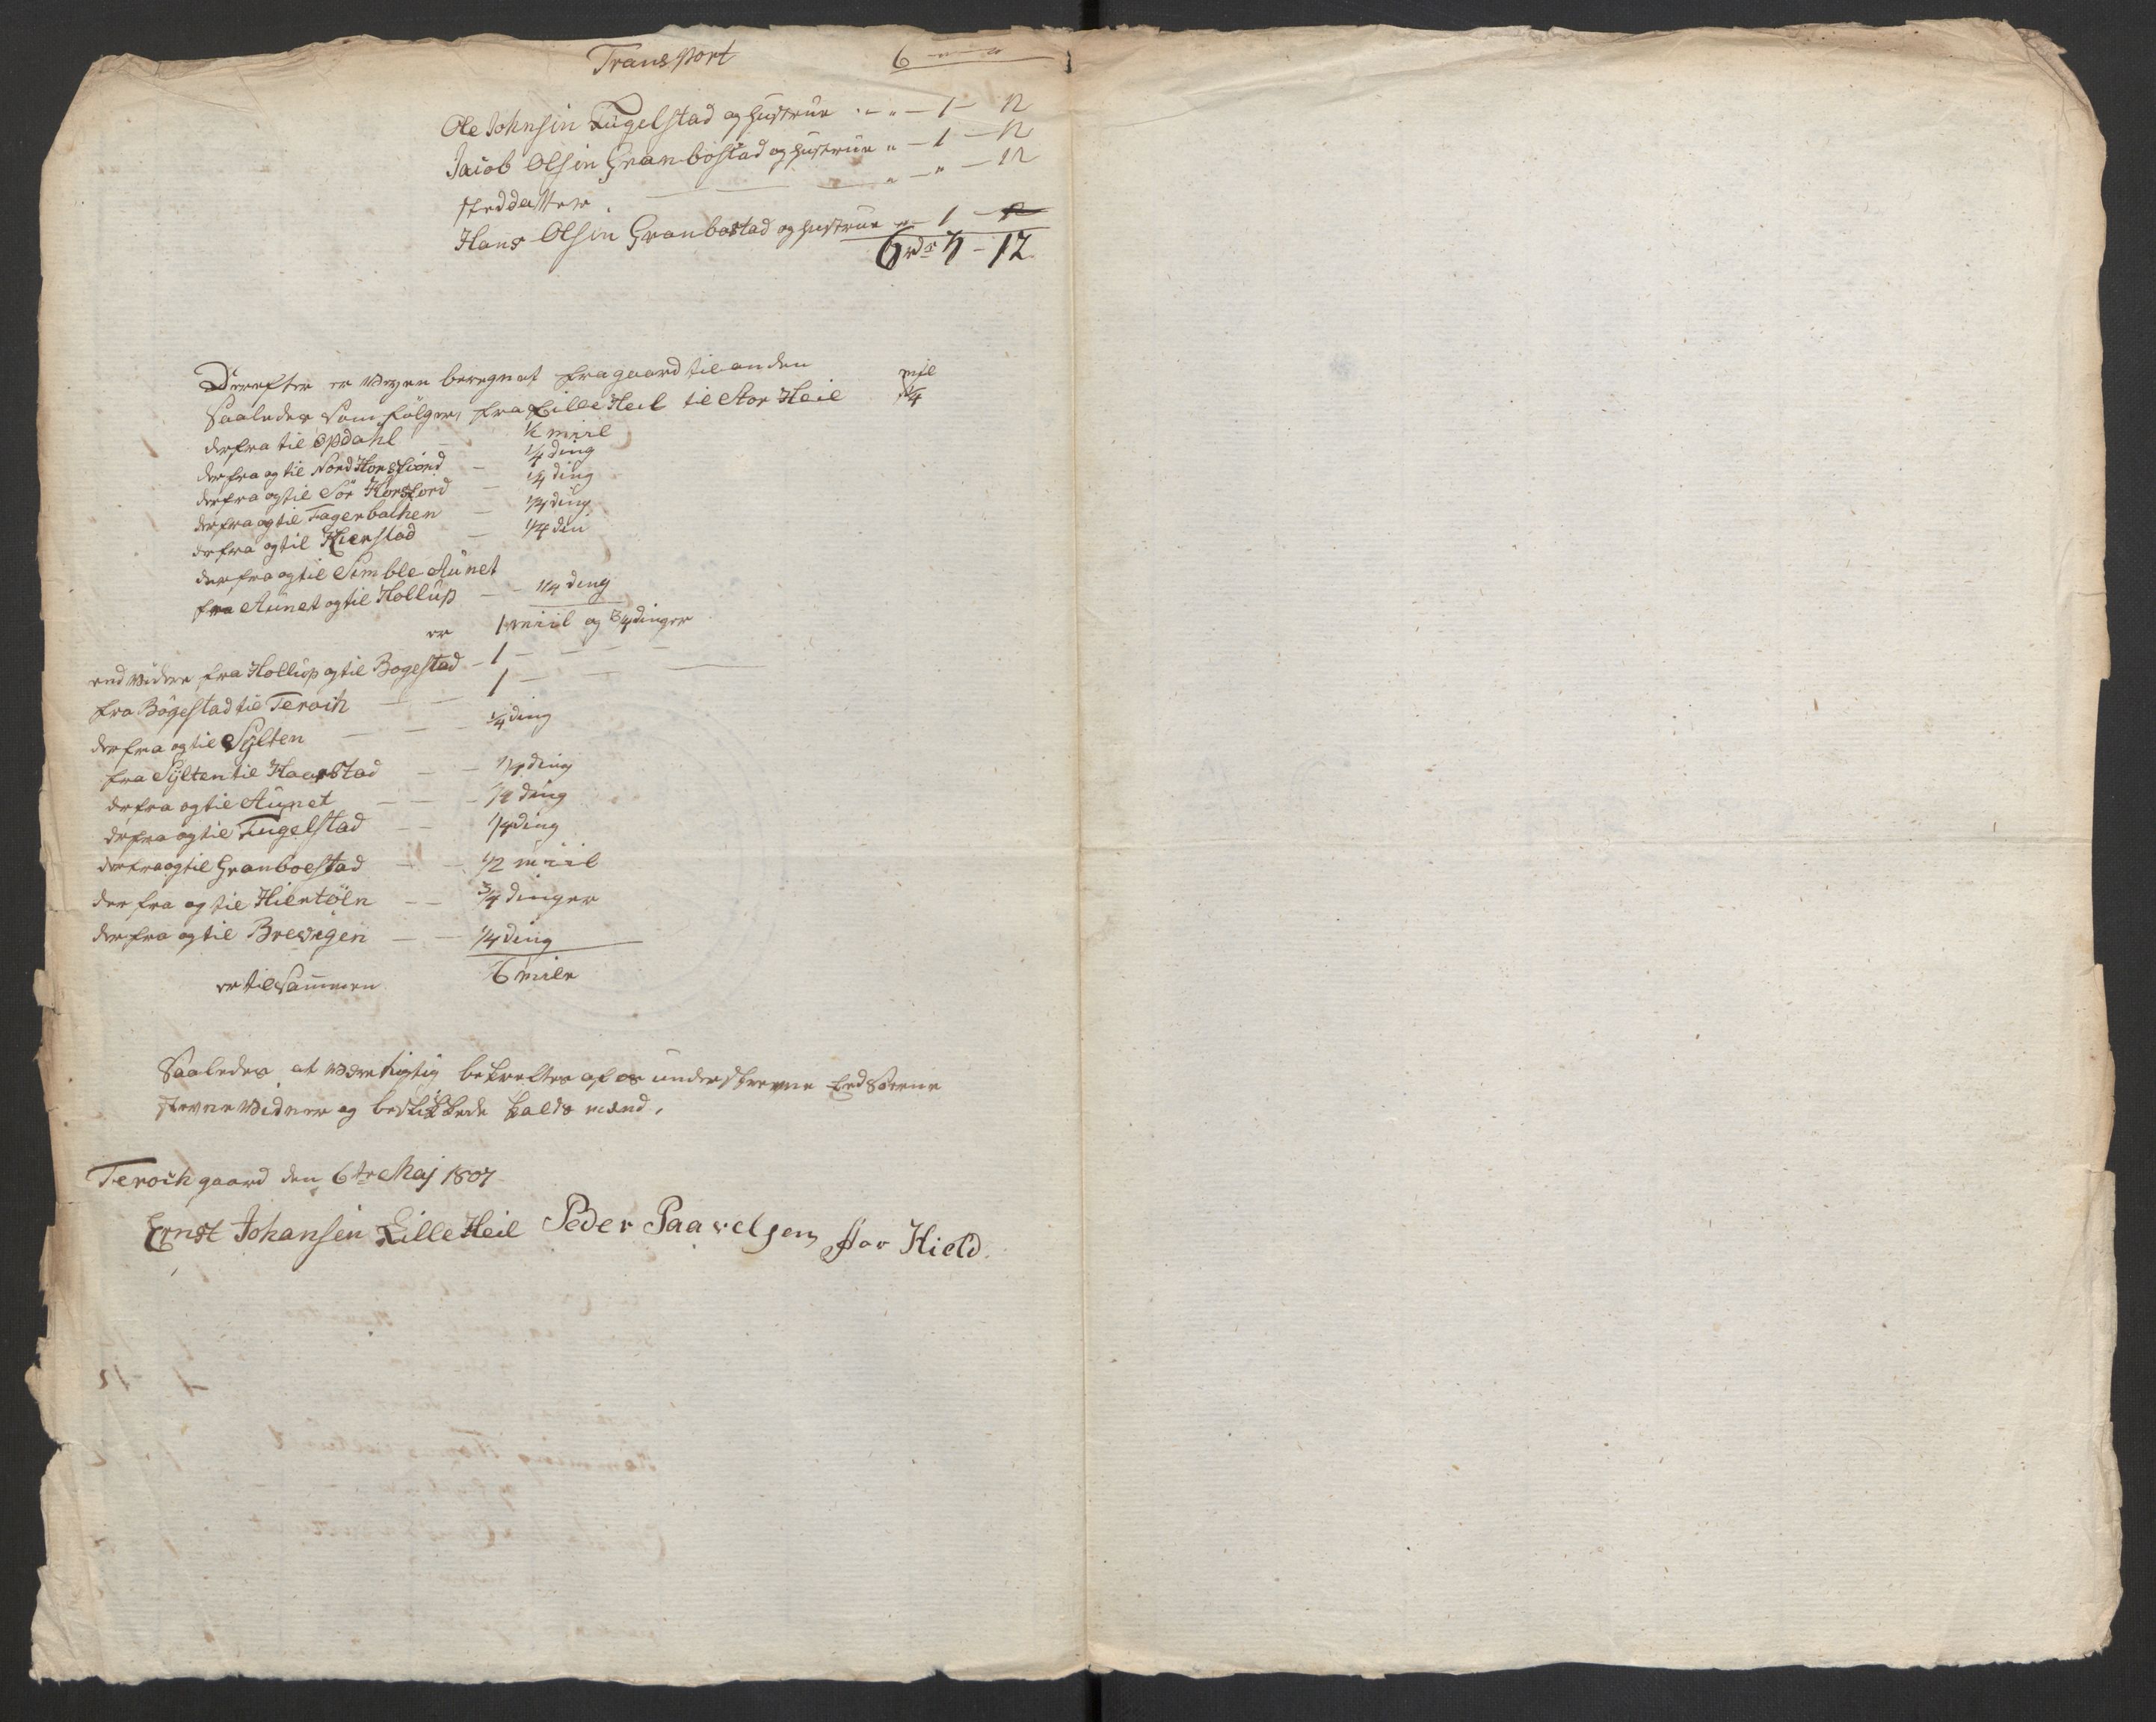 Transport 6 — " — "
Ole Johnsin Fugelstad og Hustrue " — " — 1 — 12
Jacob Olsin Granbostad og Hustrue " — 1 — 12
Steddatter — — — " — " — 12
Hans Olsin Granbostad og Hustrue " — 1 — 12
6 rdr 4 — 12
Derefter er Veyen beregnet fra gaard til anden
Saaledes som følger, fra Lille Heil til Stor Heil miil 1/4
derfra til Opdahl — 1/2 miil
derfra og til Nord Horsfiord — 1/4 ding
derfra og til Sör Horsfiord — 1/4 ding
derfra og til Fagerbachen — 1/4 ding
derfra og til Hierstad — 1/4 din
derfra og til Simble Aunet
fra Aunet og til Hollup — — 1/4 ding
er 1 miil og 3/4 dinger
end Vidre fra Hollup og til Bogestad — 1 — — — —
fra Bögestad til Teroih — — 1 — —
derfra og til Sylten — — — 1/4 ding
fra Sylten til Haarstad — — 1/4 ding
derfra og til Aunet — — — 1/4 ding
derfra og til Fugelstad — — 1/4 ding
derfra og til Granboestad — — 1/2 miil
derfra og til Hiertöln — — 3/4 dinger
derfra og til Brevigen — — 1/4 ding
er tilsammen 6 mile
Saaledes at være rigtig bekreftes af os underskrevne Eedsorne
Stevne Vidner og beskikkede kalds mænd.
Teroih gaard den 6te Maj 1807
Ernst Johansin Lille Heil Peder Paavelsen Stor Hield.